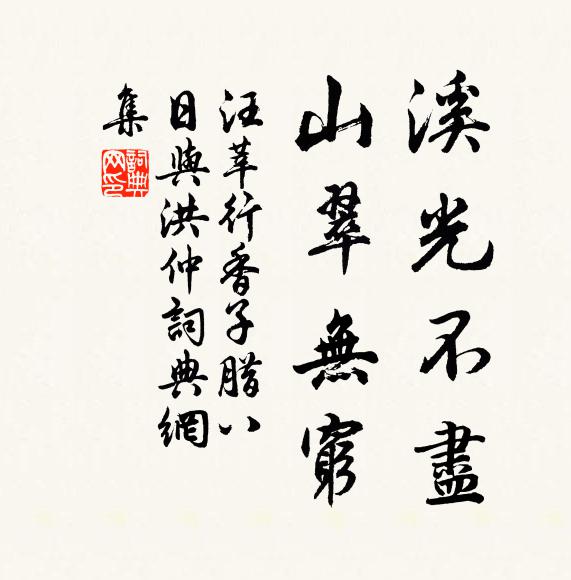 溪光不盡
山翠無窮
汪莘行香子臘八
日與洪仲詞典網
集
詞典網印